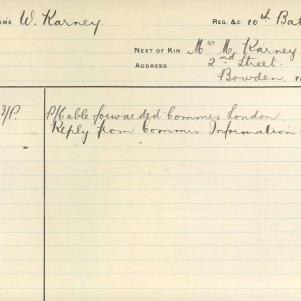 NAME W. Karney REG. &C 10th Bat
NEXT OF KIN Mrs M. Karney
ADDRESS 2nd Street.
Bowden.
P/Cable forwarded Commrs London.
Reply from Commrs Information